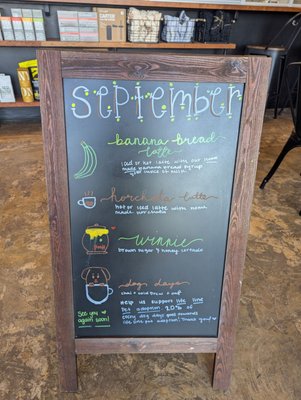 September
banana bread
latte
iced or hot latte with our home
made banana bread syrup
your choice of milk
horchata latte
hot or iced latte with home
made horchata
winnie
brown sugar & honey cortado
dog days
chai + cold brew +
Help us support life line
Pet adoption. 20% of
every dog days goes towards
life line pet adoption! Thank you!
See you
again soon!